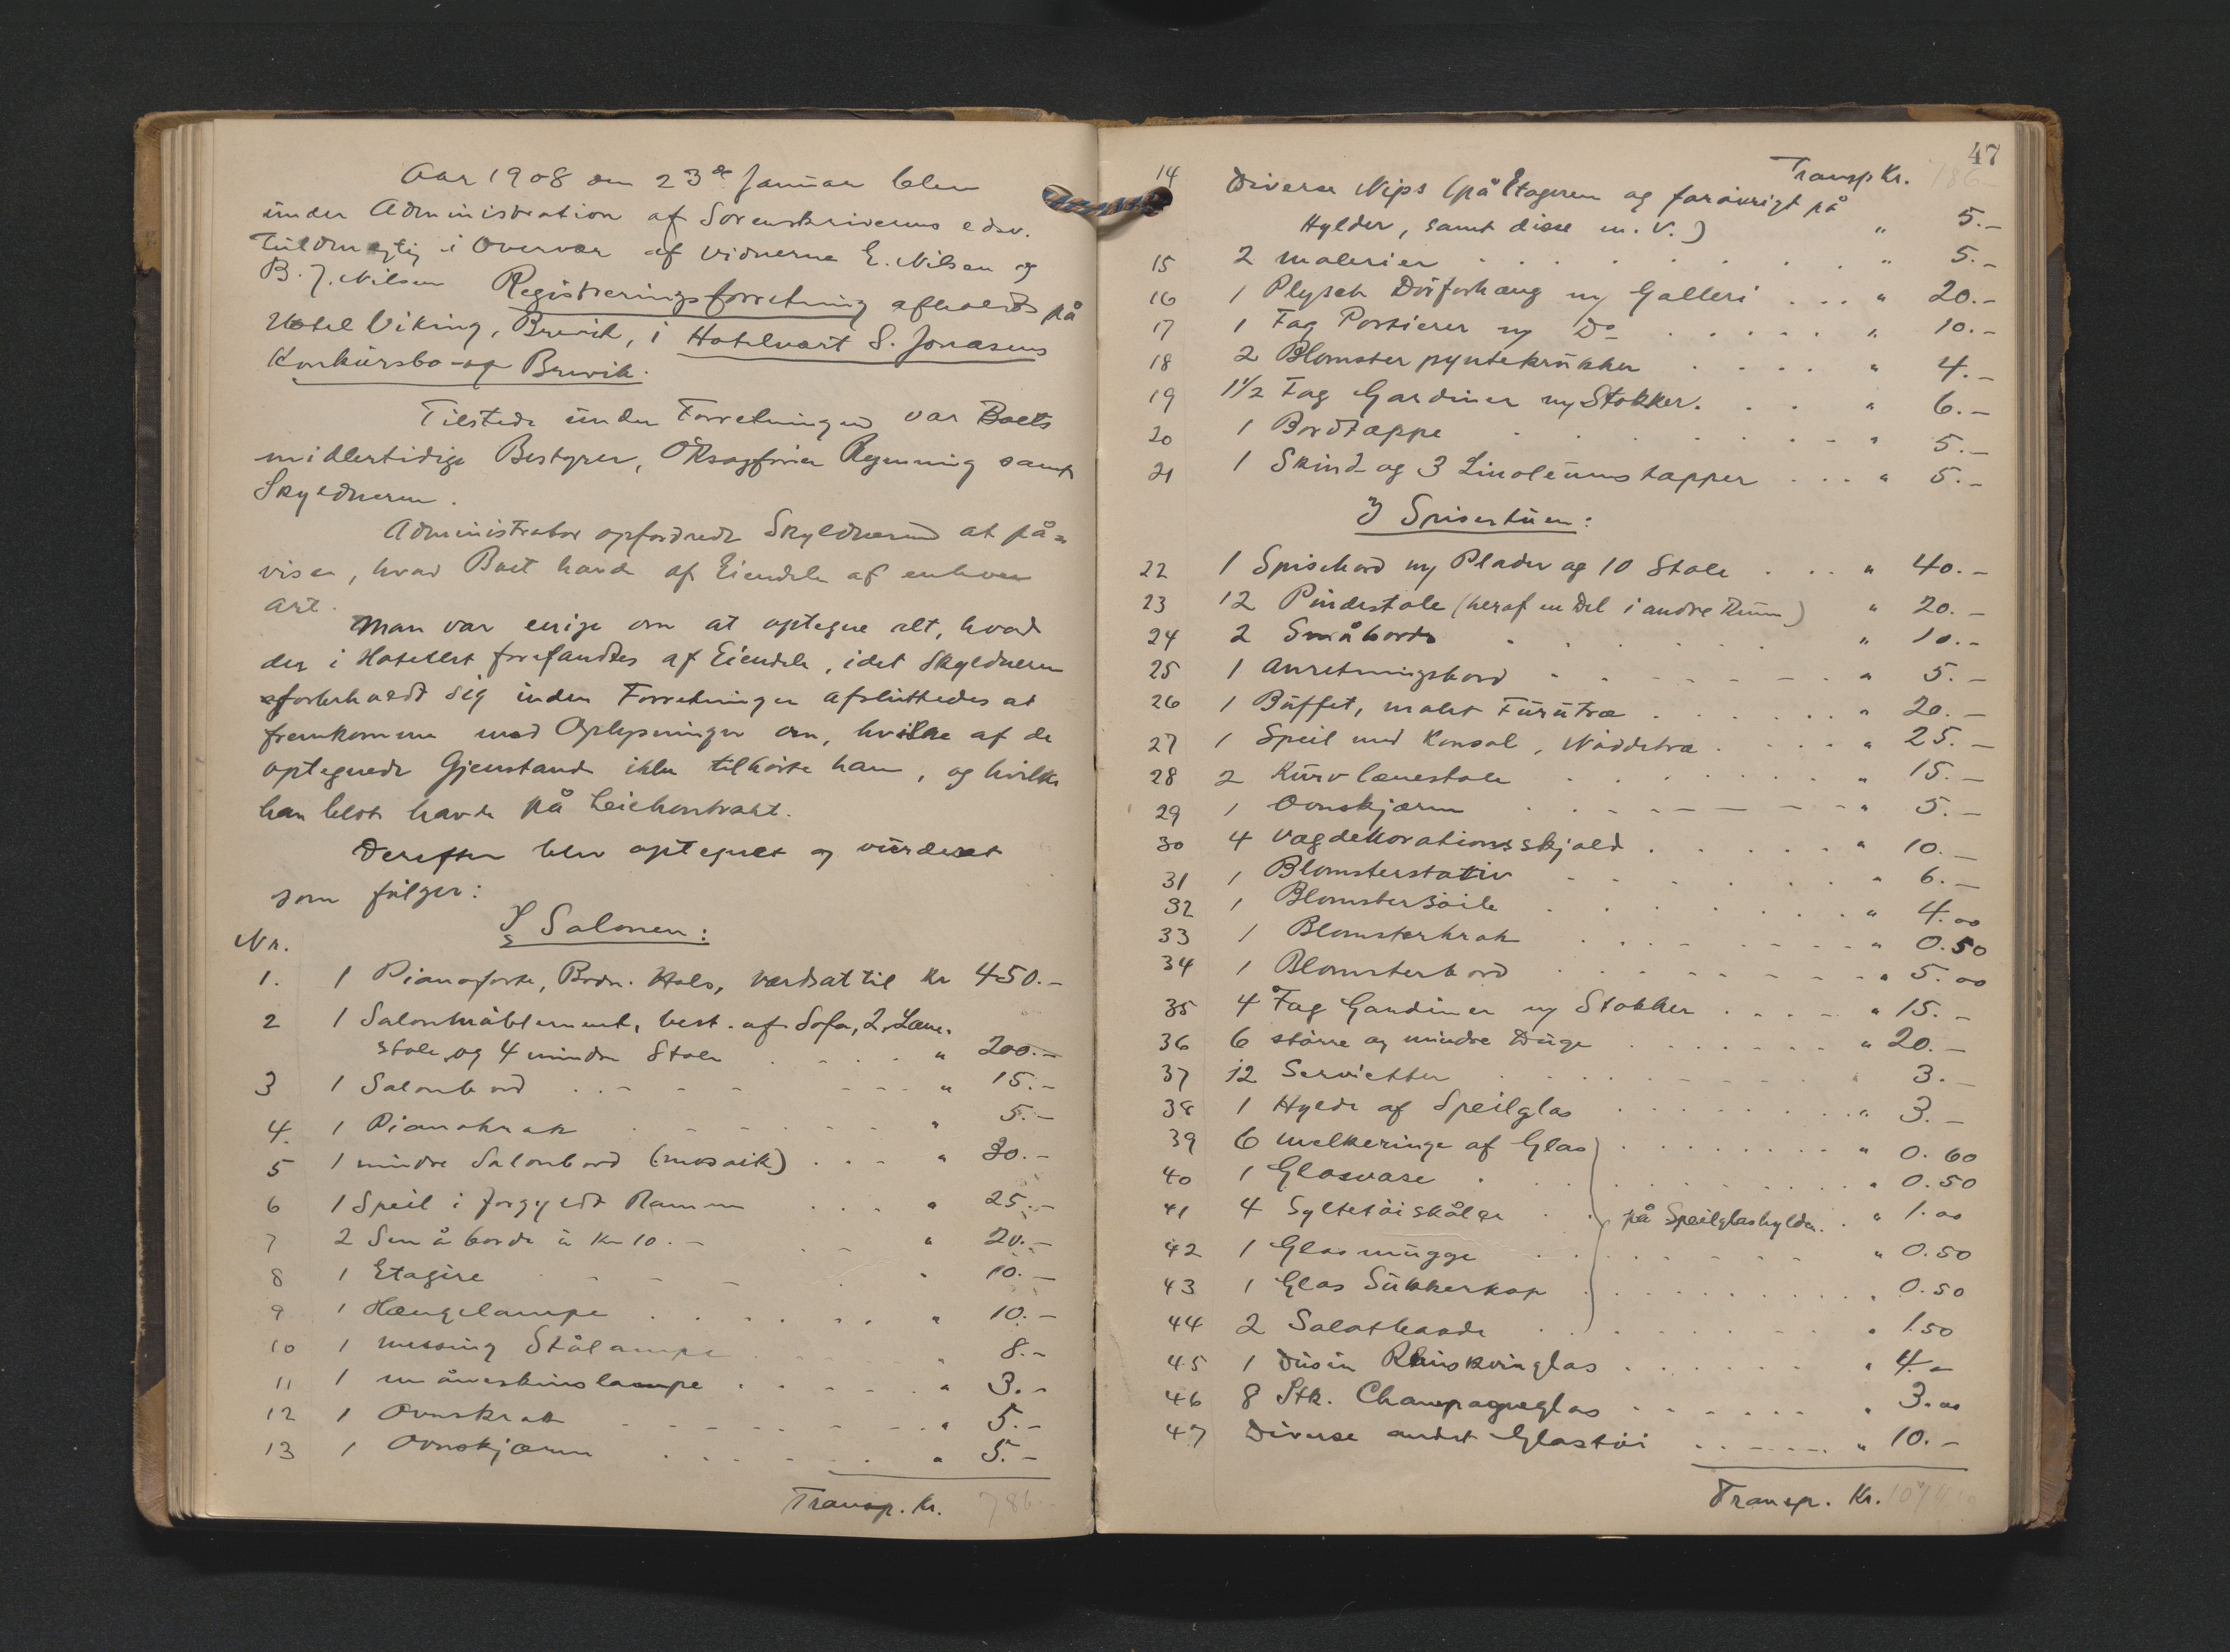 Aar 1908 den 23de Januar blev
under Administration af Sorenskriverens edsv.
Fuldmægtig i Overvær af Vidnerne E. Nilsen og
B. J. Nilsen Registreringsforretning afholdt på
Hotel Viking, Brevik, i Hotelvært S. Jonasens
Konkursbo af Brevik.
Tilstede under Forretningen var Boets
midlertidige Bestyrer, ORsagfører Rynning samt
Skyldneren.
Administrator opfordrede Skyldneren at på-
vise, hvad Boet havde af Eiendele af enhver
Art.
Man var enige om at optegne alt, hvad
der i Hotellet forefandtes af Eiendele, idet Skyldneren
forbeholdt sig inden Forretningen afsluttedes at
fremkomme med Oplysninger om, hvilke af de
optegnede Gjenstande ikke tilhørte ham, og hvilke
han blot havde på Leiekontrakt.
Derefter blev optegnet og vurderet
som følger:
I Salonen:
Nr.
1. 1 Pianoforte, Brdr. Hals, værdsat til Kr 450.-
2 1 Salonmøblement, best. af Sofa, 2 Læne-
stole og 4 mindre Stole . . . . " 200.-
3 1 Salonbord . . . . " 15.-
4. 1 Pianokrak . . . . " 5.-
5 1 mindre Salonbord (mosaik) . . . " 30.-
6 1 Speil i forgyldt Ramme . . . " 25.-
7 2 Småborde à Kr 10.- . . " 20.-
8 1 Etagère . . . . " 10.-
9 1 Hængelampe . . . . " 10.-
10 1 messing Stålampe . . . . " 8.-
11 1 måneskinslampe . . . . " 3.-
12 1 Ovnskrak . . . . " 5.-
13 1 Ovnskjærm . . . . " 5.-
Transp. Kr. 786.-
47
Transp Kr. 786
14 Diverse Nips (på Etageren og forøvrigt på
Hylder, samt disse m. V.) " 5.-
15 2 malerier . . . . " 5.-
16 1 Plysch Dørforhæng m/ Galleri . . . " 20.-
17 1 Fag Portierer m/ Do . . . . " 10.-
18 2 Blomster pyntekrukker . . . . " 4.-
19 1 1/2 Fag Gardiner m/ Stokker. . . " 6.-
20 1 Bordtæppe . . . . " 5.-
21 1 Skind- og 3 Linoleumstæpper . . . " 5.-
I Spisestuen:
22 1 Spisebord m/ Plader og 10 Stole . . . " 40.-
23 12 Pindestole (heraf en Del i andre Rum) " 20.-
24 2 Småborde . . . . " 10.-
25 1 Anretningsbord . . . . " 5.-
26 1 Buffet, malet Furutræ . . . . " 20.-
27 1 Speil med Konsol, Nøddetræ . . . . " 25.-
28 2 Kurvlænestole . . . . " 15.-
29 1 Ovnskjærm . . . . " 5.-
30 4 Vægdekorationsskjold . . . . " 10.-
31 1 Blomsterstativ . . . . " 6.-
32 1 Blomstersøile . . . . " 4.00
33 1 Blomsterkrak . . . . " 0.50
34 1 Blomsterbord . . . . " 5.00
35 4 Fag Gardiner m/ Stokker . . . . " 15.-
36 6 større og mindre Duge . . . . " 20.-
37 12 Servietter . . . . " 3.-
38 1 Hylde af Speilglas . . . . " 3.-
39 6 melkeringe af Glas . . . . " 0.60
40 1 Glasvase . . . . " 0.50
41 4 Syltetøiskåler . . på Speilglashylden. . " 1.00
42 1 Glasmugge . . . . " 0.50
43 1 Glas Sukkerkop . . . . " 0.50
44 2 Salatbaade . . . . " 1.50
45 1 Dusin Rhinskvinglas . . . . " 4.-
46 8 Stk. Champagneglas . . . . " 3.00
47 Diverse andet Glastøi . . . . " 10.-
Transp. Kr. 1074